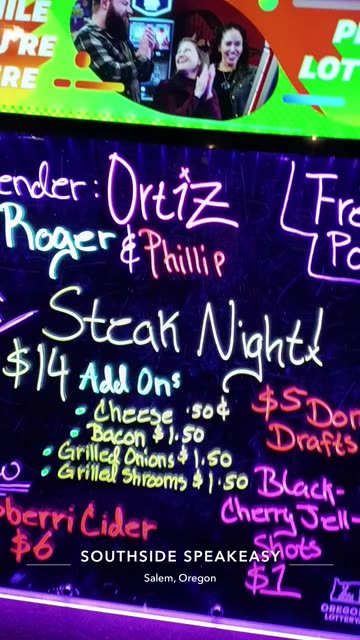 ender: Ortiz
Roger & Phillip
Fr
Po
Steak Night!
$14 Add Ons
• Cheese .50¢
• Bacon $1.50
• Grilled Onions $1.50
• Grilled Shrooms $1.50
$5 Dom
Drafts
Black-
Cherry Jell
Shots
$1
berri Cider
$6
SOUTHSIDE SPEAKEASY
Salem, Oregon
OREGO
LOTTER